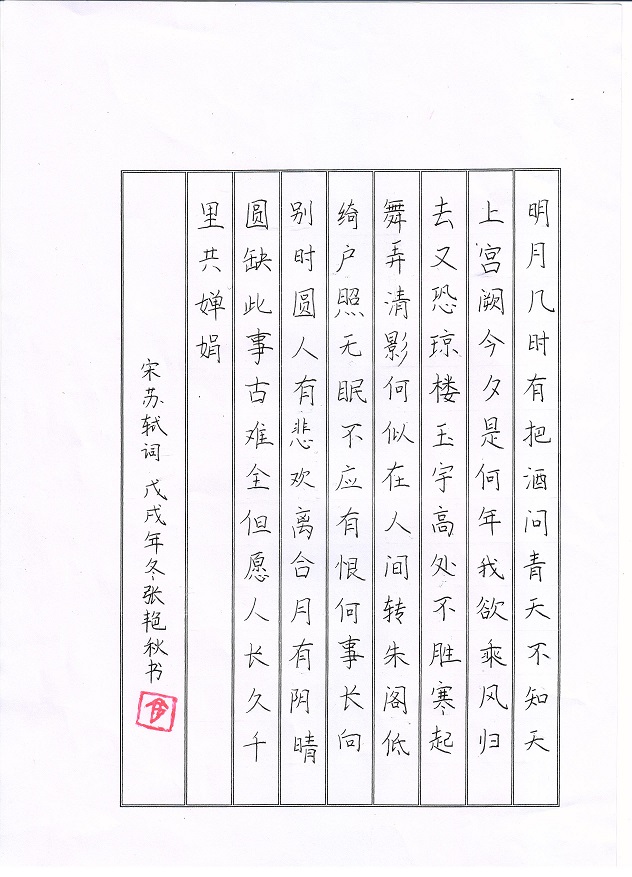 明月几时有把酒问青天不知天
上宫阙今夕是何年我欲乘风归
去又恐琼楼玉宇高处不胜寒起
舞弄清影何似在人间转朱阁低
绮户照无眠不应有恨何事长向
别时圆人有悲欢离合月有阴晴
圆缺此事古难全但愿人长久千
里共婵娟
宋苏轼词 戊戌年冬张艳秋书